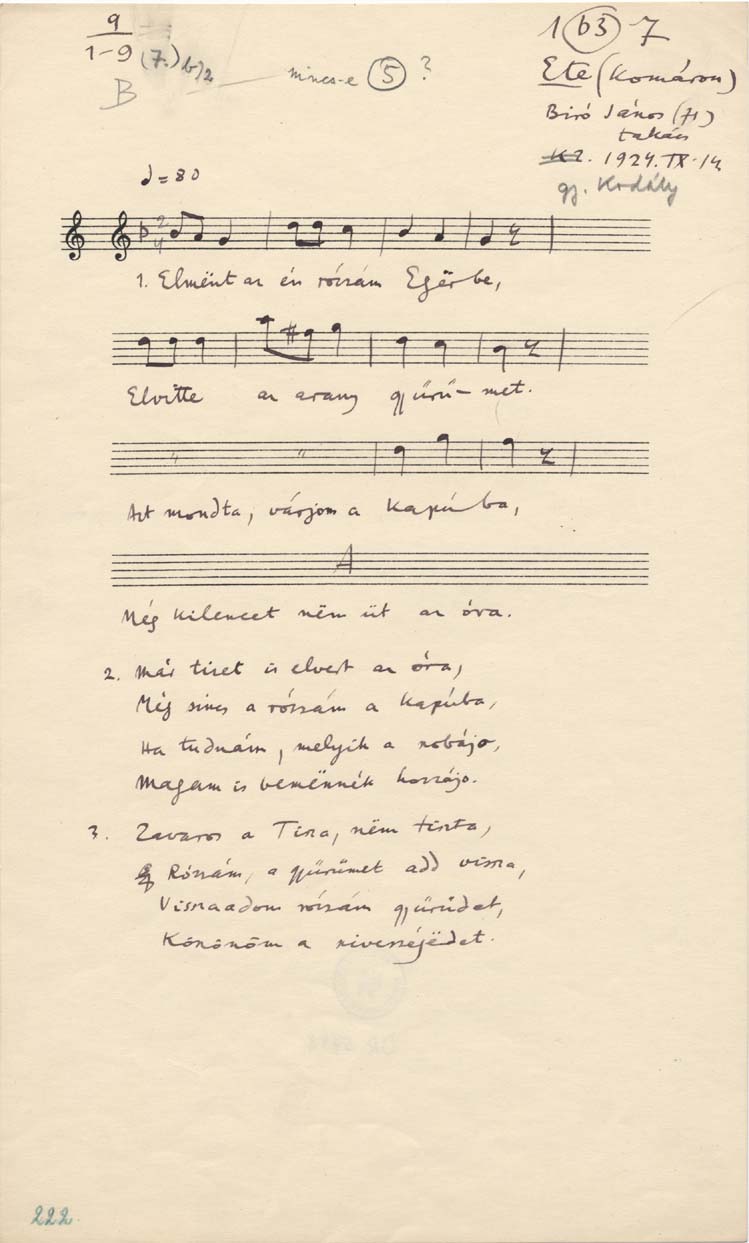 9
1-9 (7.) b)2
B
nincs-e 5 ?
1 b3 7
Ete (Komárom)
Biró János (71)
takács
KZ. 1924.IX.14.
gy. Kodály
= 80
2
4
1. Elmënt az én rózsám Egërbe,
Elvitte az arany gyűrű-met.
Azt mondta, várjom a kapúba,
A
Még kilencet nëm üt az óra.
2. Már tizet is elvert az óra,
Még sincs a rózsám a kapúba,
Ha tudnám, melyik a szobájo,
Magam is bemënnék hozzájo.
3. Zavaros a Tisza, nëm tiszta,
Rózsám, a gyűrűmet add vissza,
Visszaadom rózsám gyűrűdet,
Köszönöm a szivességëdet.
222.